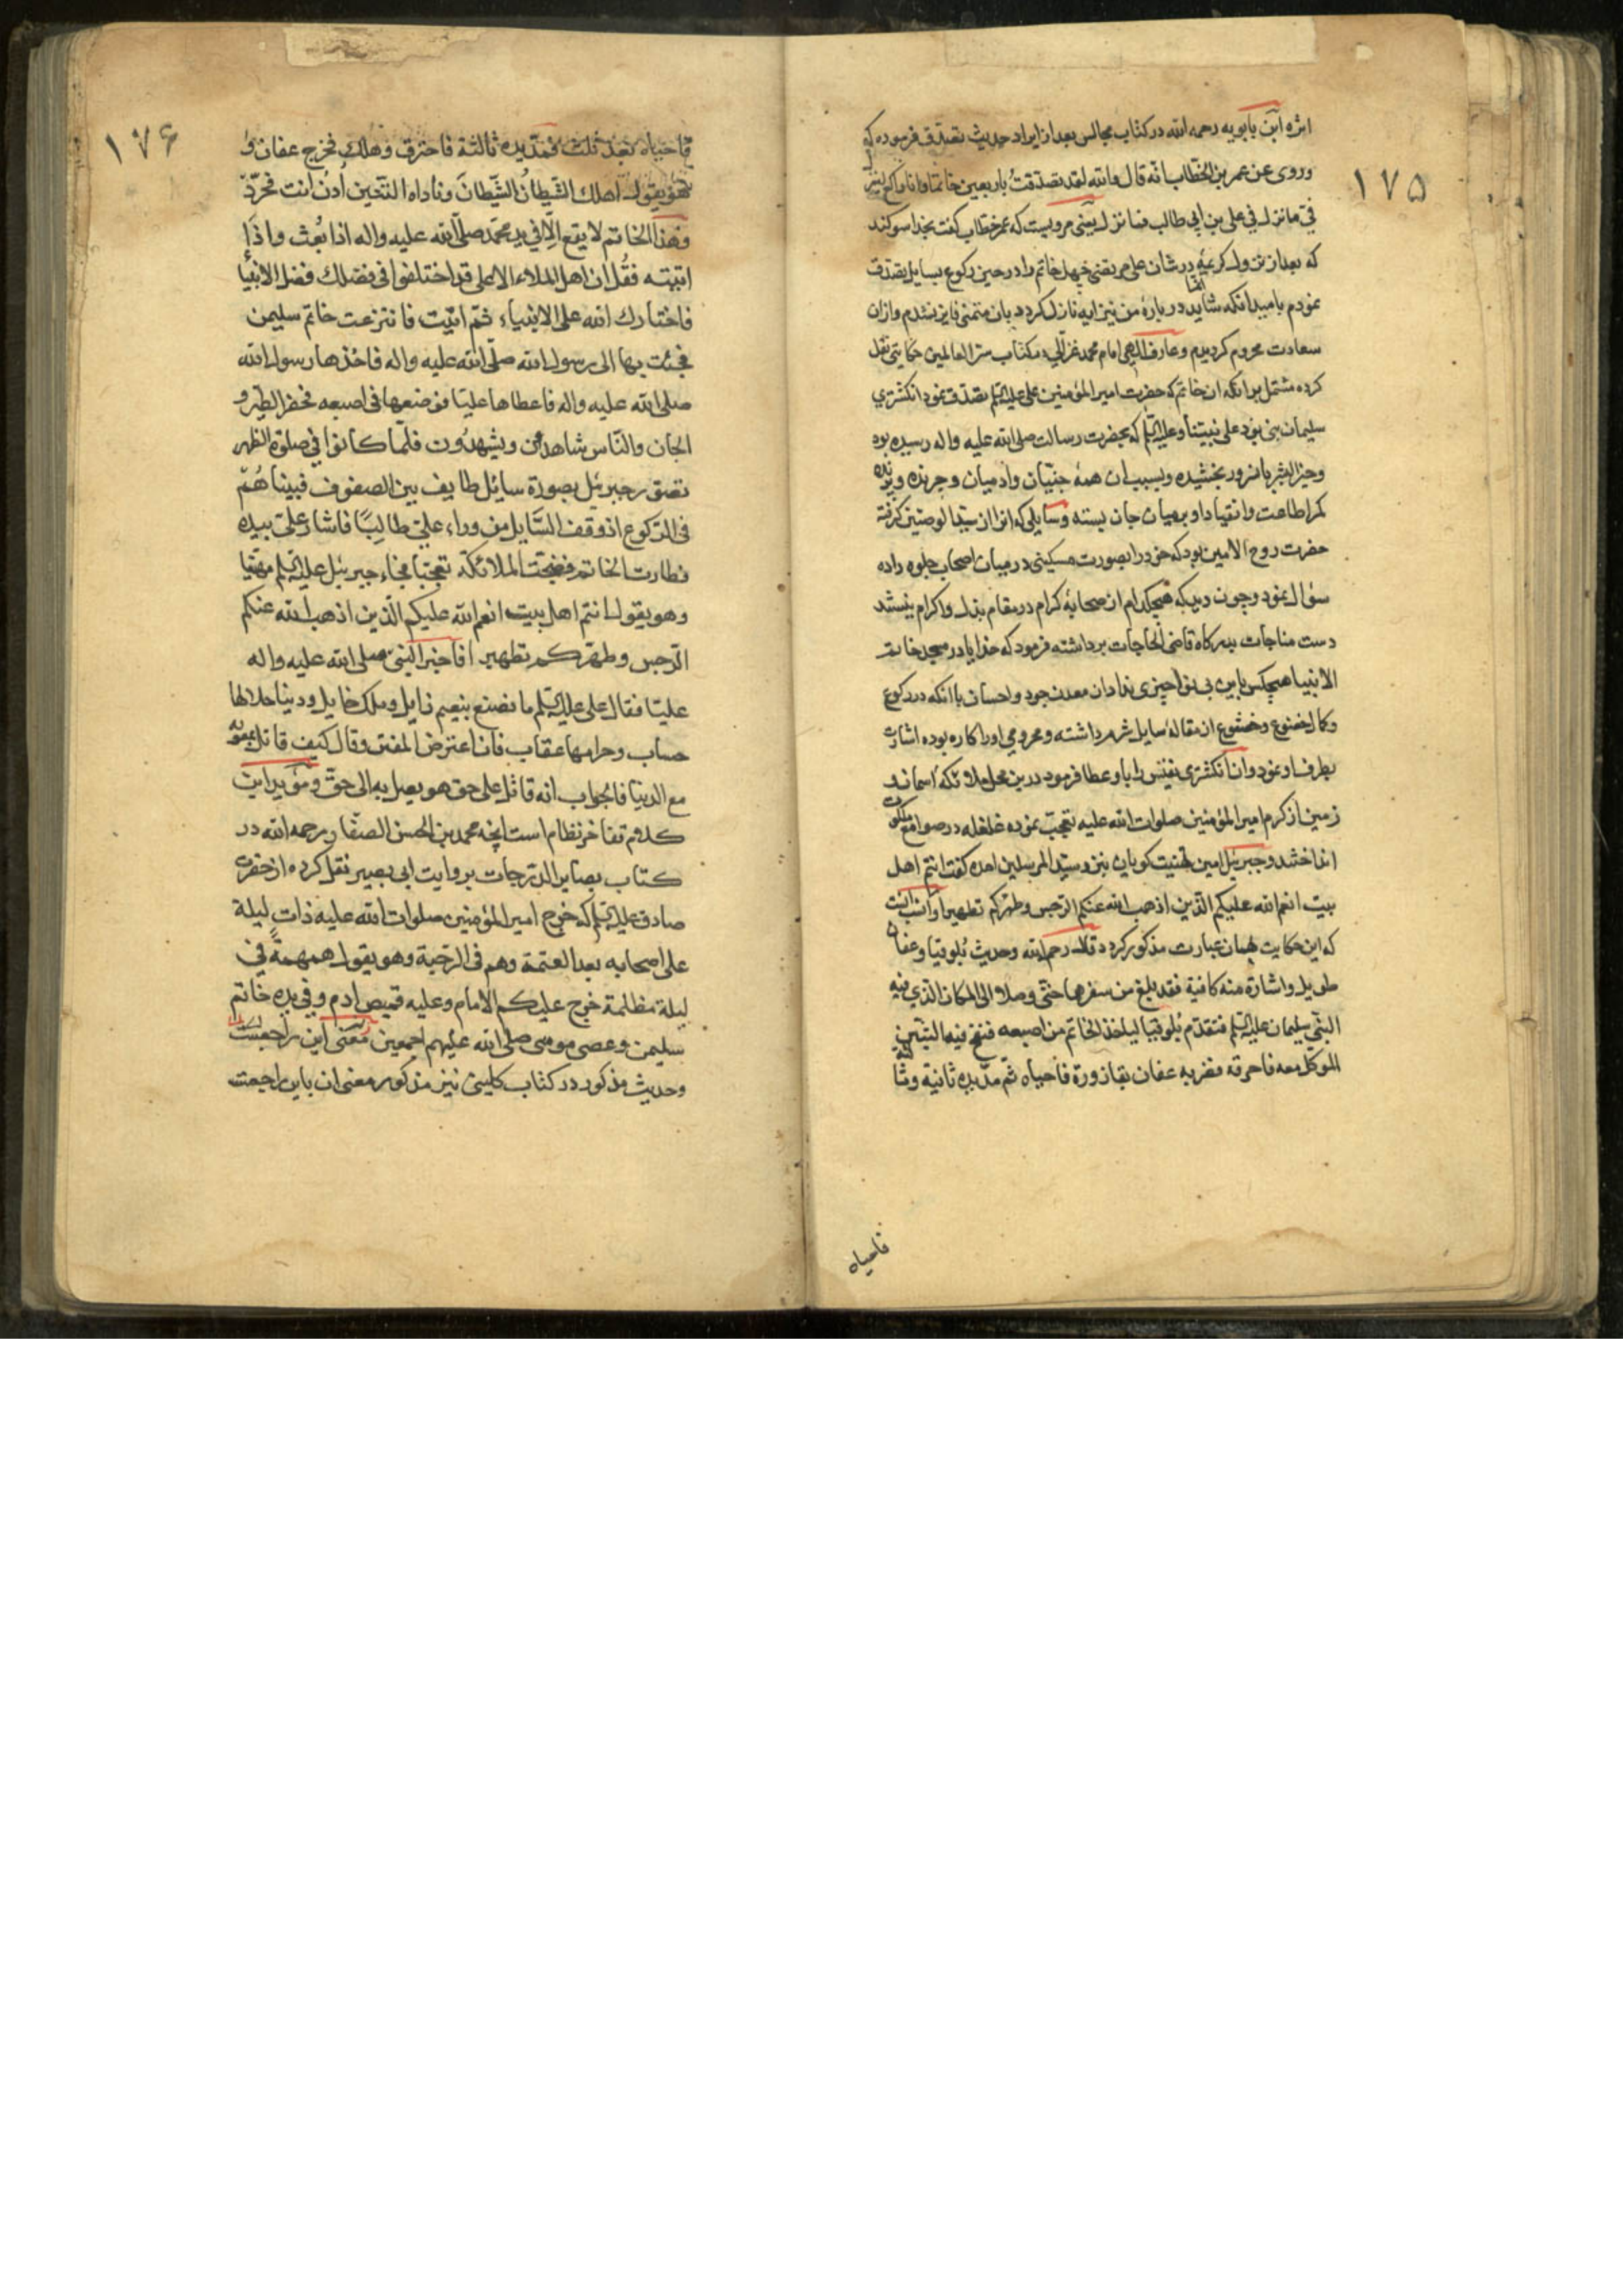 ۱۷۵
ابن بابویه رحمه الله در کتاب مجالس بعد از ایراد حدیث تصدق فرموده که
وروی عن عمر بن الخطاب انه قال والله لقد تصدقت باربعین خاتما وانا راکع لینزل
فیّ ما نزل فی علی بن ابی طالب فما نزل یعنی مرویست که عمر خطاب کفت بخدا سوکند
که بعد از نزول کریمه انما در شان علی مرتضی چهل خاتم را در حین رکوع بسایل تصدق
نمودم بامید انکه شاید در باره من نیز ایه نازل کردد بان متمنی فایز نشدم وازان
سعادت محروم کردیدم وعارف الهی امام محمد غزالی در کتاب سر العالمین حکایتی نقل
کرده مشتمل بر انکه ان خاتم که حضرت امیر المؤمنین علی علیه السلم تصدق نمود انکشتری
سلیمان نبی بود علی نبینا وعلیه السلم که بحضرت رسالت صلی الله علیه واله رسیده بود
وخیر البشر بانسرور بخشیده وبسبب ان همه جنیان وادمیان وچرنده وپرنده
کمر اطاعت وانقیاد او برمیان جان بسته وسایلی که انرا از سید الوصیین کرفته
حضرت روح الامین بود که خود را بصورت مسکینی در میان اصحاب جلوه داده
سؤال نمود وچون دید که هیچکدام از صحابه کرام در مقام بذل واکرام نیستند
دست مناجات بدرکاه قاضی الحاجات برداشته فرمود که خدایا در مسجد خاتم
الانبیا هیچکس باین بی نوا چیزی نداد ان معدن جود واحسان با انکه در رکوع
وکمال خضوع وخشوع از مقاله سایل شرم داشته ومحرومی اورا کاره بوده اشارت
بطرف او نمود وان انکشتری نفیس را باو عطا فرمود در این محل ملائکه اسمان و
زمین از کرم امیر المؤمنین صلوات الله علیه تعجب نموده غلغله در صوامع ملکوت
انداختند وجبرئیل امین تهنیت کویان بنزد سید المرسلین امده کفت انتم اهل
بیت انعم الله علیکم الذین اذهب الله عنکم الرجس وطهرکم تطهیرا وانسب انست
که این حکایت بهمان عبارت مذکور کردد قال رحمه الله وحدیث بلوقیا وعفان
طویل واشارة منه کافیة فقد بلغ من سفرهما حتی وصلا الی المکان الذی فیه
النبی سلیمان علیه السلم فتقدم بلوقیا لیاخذ الخاتم من اصبعه فنفخ فیه التنین
الموکل معه فاحرقه فضربه عفان بقارورة فاحیاه ثم مد یده ثانیة وثالثة
فاحیاه
۱۷۶
فاحیاه بعد ثلث فمد یده ثالثة فاحترق وهلک فخرج عفان و
هو یقول اهلک الشیطان الشیطان وناداه التنین ادن انت فجرّب
وهذا الخاتم لا یقع الا فی ید محمد صلی الله علیه واله اذا بعث واذا
اتیته فقل ان اهل الملاء الاعلی قد اختلفوا فی فضلک فضل الانبیا
فاختارک الله علی الانبیاء ثم اتیت فانتزعت خاتم سلیمن
فجئت بها الی رسول الله صلی الله علیه واله فاخذها رسول الله
صلی الله علیه واله فاعطاها علیا فوضعها فی اصبعه فحضر الطیر و
الجان والناس شاهدین ویشهدون فلما کانوا فی صلوة الظهر
تصور جبرئیل بصورة سائل طایف بین الصفوف فبینا هم
فی الرکوع اذ وقف السایل من وراء علی طالبا فاشار علی بیده
فطارت الخاتم فضجت الملائکة تعجبا فجاء جبرئیل علیه السلم مهنیا
وهو یقول انتم اهل بیت انعم الله علیکم الذین اذهب الله عنکم
الرجس وطهرکم تطهیرا فاخبر النبی صلی الله علیه واله
علیا فقال علی علیه السلم ما نصنع بنعیم زایل وملک حایل ودنیا حلالها
حساب وحرامها عقاب فان اعترض المفتی وقال کیف قاتل معویة
مع الدنیا فالجواب انه قاتل علی حق هو یصل به الی حق ومؤید این
کلام تفاخر نظام است انچه محمد بن الحسن الصفار رحمه الله در
کتاب بصایر الدرجات بروایت ابی بصیر نقل کرده از حضرت
صادق علیه السلم که خرج امیر المؤمنین صلوات الله علیه ذات لیلة
علی اصحابه بعد العتمة وهم فی الرحبة وهو یقول همهمة فی
لیلة مظلمة خرج علیکم الامام وعلیه قمیص ادم وفی یده خاتم
سلیمن وعصی موسی صلی الله علیهم اجمعین معنی این راجعست
وحدیث مذکور در کتاب کلینی نیز مذکور معنی ان باین راجعست